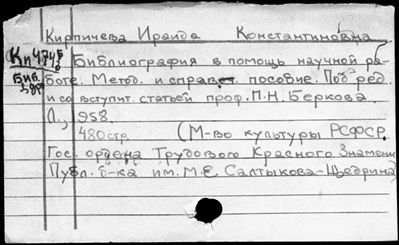 Кирпичева Ираида Константиновна
Кп4745 Библиография в помощь научной ра-
Биб. боте. Метод. и справ. пособие. Под ред.
и со вступит. статьей проф. П.Н. Беркова.
Л., 1958.
480стр. (М-во культуры РСФСР.
Гос. ордена Трудового Красного Знамени
Публ. б-ка им. М.Е. Салтыкова-Щедрина)